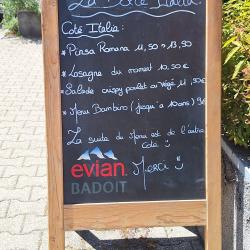 La Dolce Italia
Coté Italia :
* Pinsa Romana 11,50 > 13,50
* Lasagne du moment 10,50 €
* Salade crispy poulet ou végé 11,50 €
* Menu Bambino (jusqu'à 10 ans) 9€
La suite du Menu est de l'autre
coté :)
Merci :)
evian
BADOIT